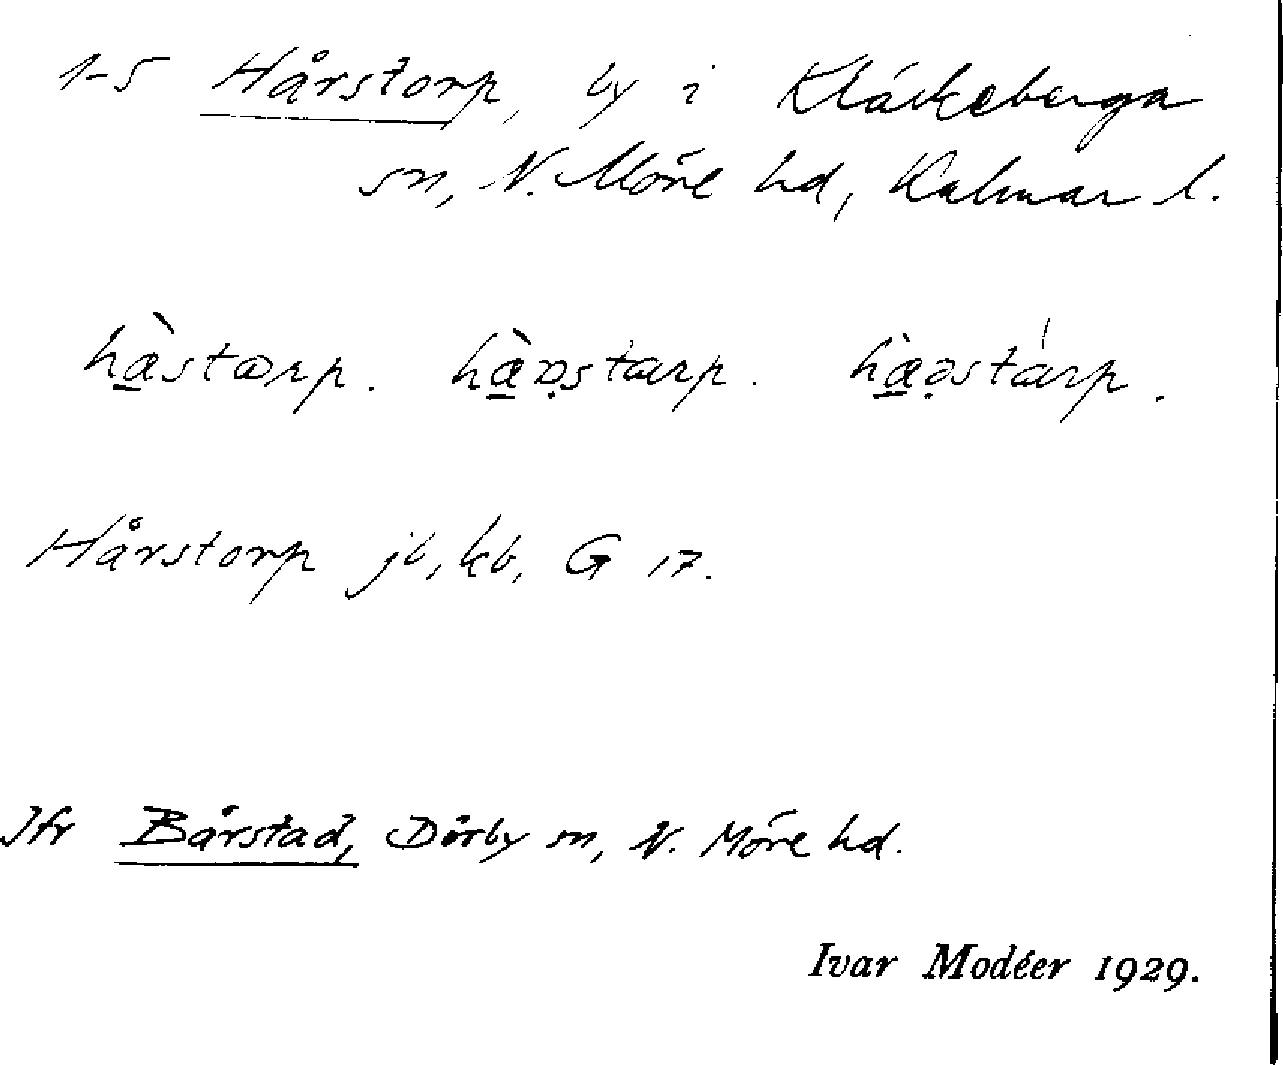 1-5 Hårstorp, by i Kläckeberga
sn, N. Möre hd, Kalmar l.
hæ̱̀stɷrp. hæ̱̀ɒ̣starp. hæ̱̀ə̣stárp.
Hårstorp jb, kb, G 17.
Jfr Bårstad, Dörby sn, N. Möre hd.
Ivar Modéer 1929.